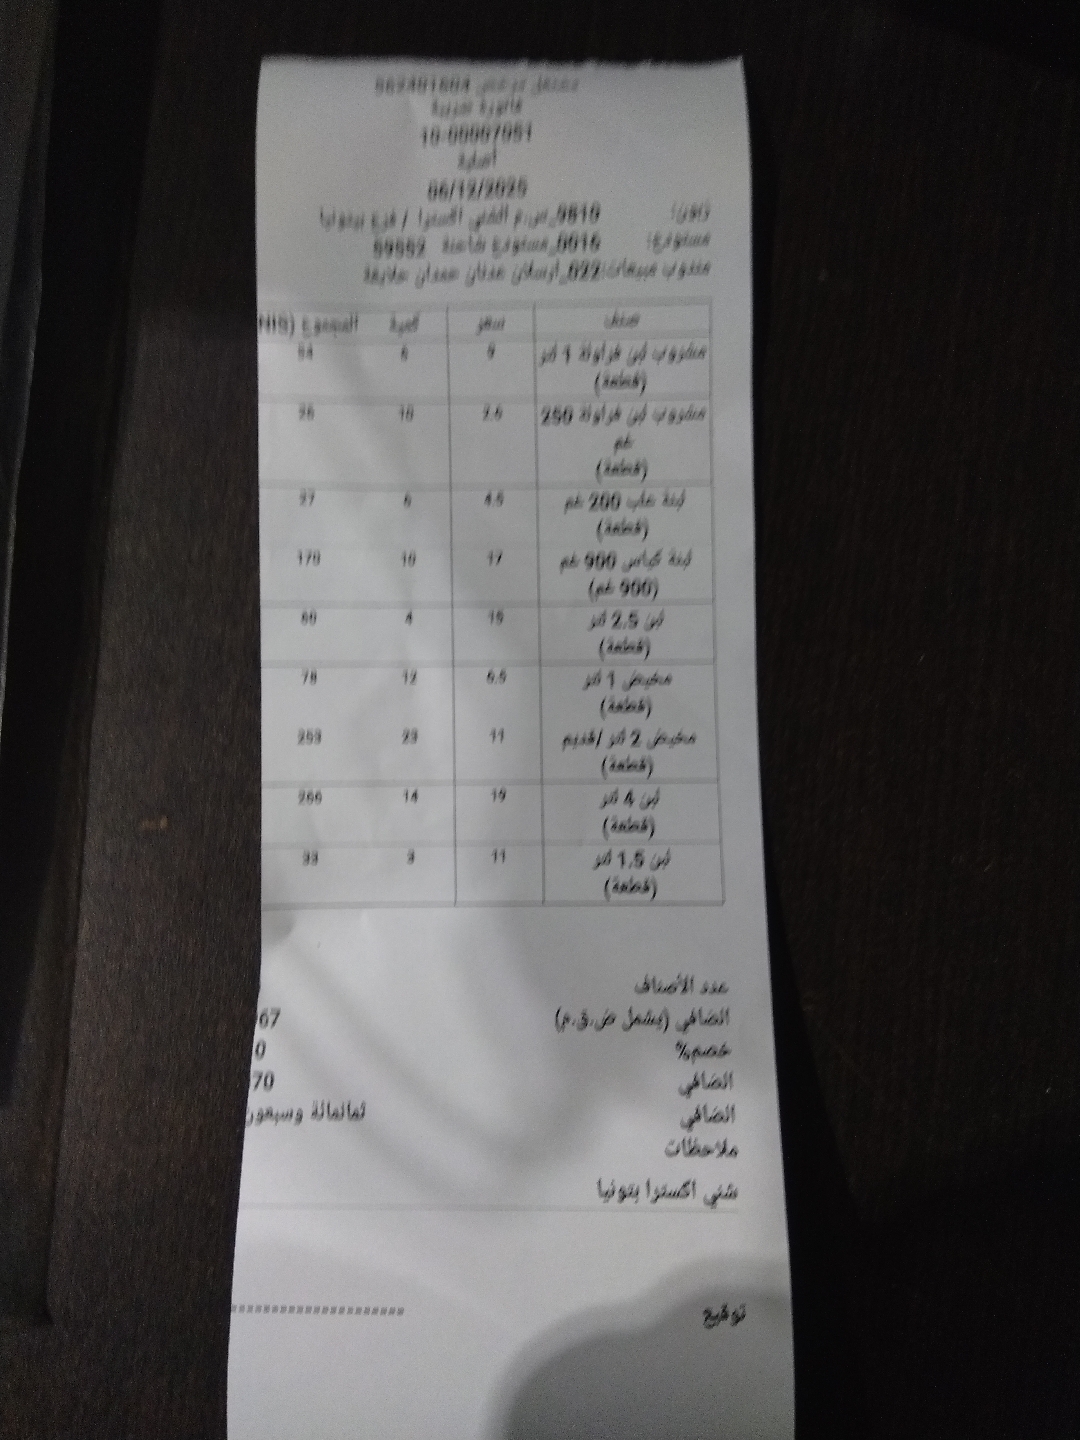 مشتغل مرخص 562401604
فاتورة ضريبية
10-00007051
أصلية
06/12/2025
زبون: 9810_س.م الشني اكسترا / فرع بيتونيا
مستودع: 0016_مستودع شاحنة 99552
مندوب مبيعات: 022_ارسلان عدنان حمدان
صنف سعر كمية المجموع (NIS
مشروب لبن فراولة 1 لتر 9 6 54
(قطعة)
مشروب لبن فراولة 250 2.5 10 25
غم
(قطعة)
لبنة علب 200 غم 4.5 6 27
(قطعة)
لبنة كياس 900 غم 17 10 170
(900 غم)
لبن 2.5 لتر 15 4 60
(قطعة)
مخيض 1 لتر 6.5 12 78
(قطعة)
مخيض 2 لتر /قديم 11 23 253
(قطعة)
لبن 4 لتر 19 14 266
(قطعة)
لبن 1.5 لتر 11 3 33
(قطعة)
عدد الأصناف
الصافي (يشمل ض.ق.م) 67
خصم% 0
الصافي 70
الصافي ثمانمائة وسبعون
ملاحظات
شني اكسترا بتونيا
توقيع --------------------